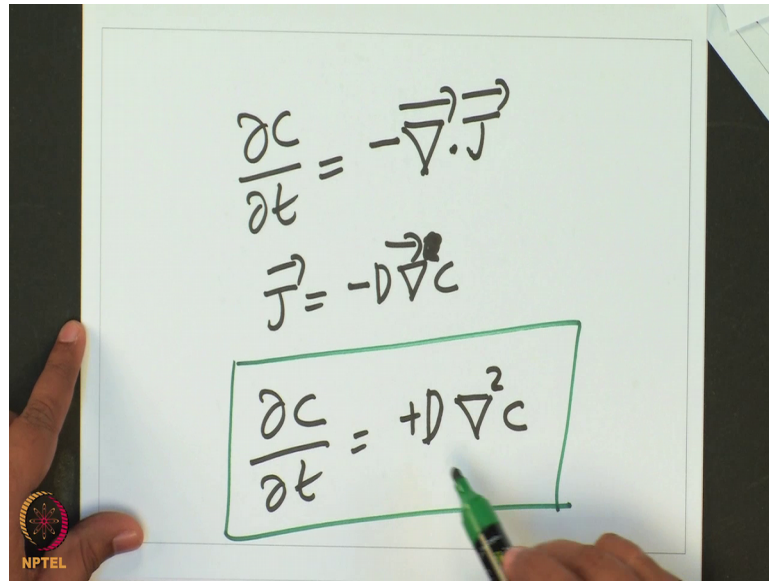 ∂C/∂t = -∇⃗ . J⃗
J⃗ = -D ∇⃗ C
∂C/∂t = +D ∇² C
NPTEL